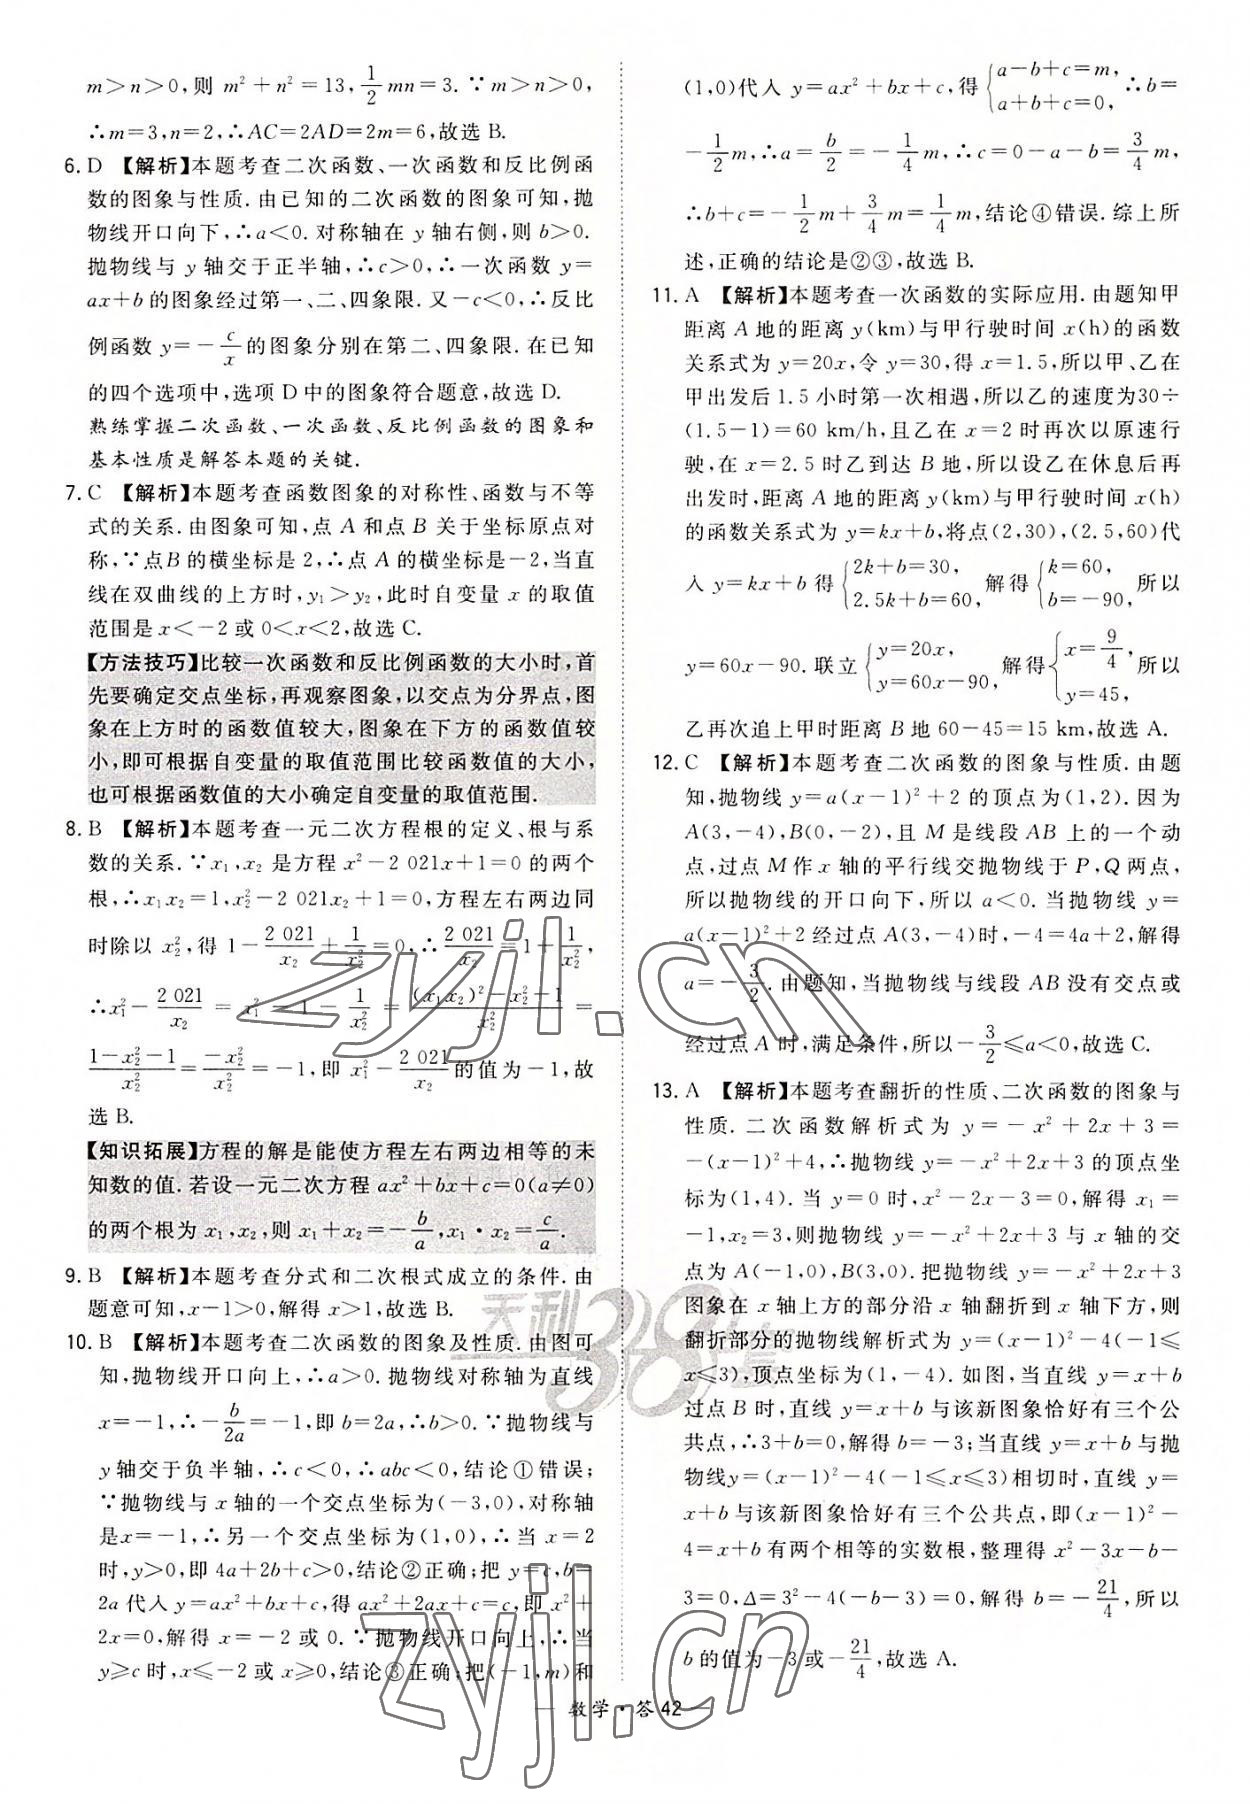 m>n>0,则 m²+n²=13,1/2mn=3.∵m>n>0,
∴m=3,n=2,∴AC=2AD=2m=6,故选 B.
6. D 【解析】本题考查二次函数、一次函数和反比例函
数的图象与性质.由已知的二次函数的图象可知,抛
物线开口向下,∴a<0.对称轴在 y 轴右侧,则 b>0.
抛物线与 y 轴交于正半轴,∴c>0,∴一次函数 y=
ax+b 的图象经过第一、二、四象限.又-c<0,∴反比
例函数 y=-c/x 的图象分别在第二、四象限.在已知
的四个选项中,选项 D 中的图象符合题意,故选 D.
熟练掌握二次函数、一次函数、反比例函数的图象和
基本性质是解答本题的关键.
7. C 【解析】本题考查函数图象的对称性、函数与不等
式的关系.由图象可知,点 A 和点 B 关于坐标原点对
称,∵点B 的横坐标是 2,∴点 A 的横坐标是-2,当直
线在双曲线的上方时,y₁>y₂,此时自变量 x 的取值
范围是 x<-2 或 0<x<2,故选 C.
【方法技巧】比较一次函数和反比例函数的大小时,首
先要确定交点坐标,再观察图象,以交点为分界点,图
象在上方时的函数值较大,图象在下方的函数值较
小,即可根据自变量的取值范围比较函数值的大小,
也可根据函数值的大小确定自变量的取值范围.
8. B 【解析】本题考查一元二次方程根的定义、根与系
数的关系.∵x₁,x₂ 是方程 x²-2 021x+1=0 的两个
根,∴x₁x₂=1,x₂²-2 021x₂+1=0,方程左右两边同
时除以 x₂²,得 1-2 021/x₂+1/x₂²=0,∴2 021/x₂=1+1/x₂²,
∴x₁²-2 021/x₂=x₁²-1-1/x₂²=((x₁x₂)²-x₂²-1)/x₂²=
(1-x₂²-1)/x₂²=-x₂²/x₂²=-1,即 x₁²-2 021/x₂的值为-1,故
选 B.
【知识拓展】方程的解是能使方程左右两边相等的未
知数的值.若设一元二次方程 ax²+bx+c=0(a≠0)
的两个根为 x₁,x₂,则 x₁+x₂=-b/a,x₁·x₂=c/a.
9. B 【解析】本题考查分式和二次根式成立的条件.由
题意可知,x-1>0,解得 x>1,故选 B.
10. B 【解析】本题考查二次函数的图象及性质.由图可
知,抛物线开口向上,∴a>0.抛物线对称轴为直线
x=-1,∴-b/2a=-1,即 b=2a,∴b>0.∵抛物线与
y 轴交于负半轴,∴c<0,∴abc<0,结论①错误;
∵抛物线与 x 轴的一个交点坐标为(-3,0),对称轴
是x=-1,∴另一个交点坐标为(1,0),∴当 x=2
时,y>0,即 4a+2b+c>0,结论②正确;把 y=c,b=
2a 代入 y=ax²+bx+c,得 ax²+2ax+c=c,即 x²+
2x=0,解得 x=-2 或 0.∵抛物线开口向上,∴当
y≥c 时,x≤-2 或 x≥0,结论③正确;把(-1,m)和
(1,0)代入 y=ax²+bx+c,得{a-b+c=m, a+b+c=0,∴b=
-1/2m,∴a=b/2=-1/4m,∴c=0-a-b=3/4m,
∴b+c=-1/2m+3/4m=1/4m,结论④错误.综上所
述,正确的结论是②③,故选 B.
11. A 【解析】本题考查一次函数的实际应用.由题知甲
距离 A 地的距离 y(km)与甲行驶时间 x(h)的函数
关系式为 y=20x,令 y=30,得 x=1.5,所以甲、乙在
甲出发后 1.5 小时第一次相遇,所以乙的速度为30÷
(1.5-1)=60 km/h,且乙在 x=2 时再次以原速行
驶,在 x=2.5 时乙到达 B 地,所以设乙在休息后再
出发时,距离 A 地的距离 y(km)与甲行驶时间 x(h)
的函数关系式为 y=kx+b,将点(2,30),(2.5,60)代
入 y=kx+b 得{2k+b=30, 2.5k+b=60,解得{k=60, b=-90,所以
y=60x-90.联立{y=20x, y=60x-90,解得{x=9/4, y=45,所以
乙再次追上甲时距离 B 地 60-45=15 km,故选 A.
12. C 【解析】本题考查二次函数的图象与性质.由题
知,抛物线 y=a(x-1)²+2 的顶点为(1,2).因为
A(3,-4),B(0,-2),且 M 是线段 AB 上的一个动
点,过点 M 作 x 轴的平行线交抛物线于 P,Q 两点,
所以抛物线的开口向下,所以 a<0.当抛物线 y=
a(x-1)²+2 经过点 A(3,-4)时,-4=4a+2,解得
a=-3/2.由题知,当抛物线与线段 AB 没有交点或
经过点 A 时,满足条件,所以-3/2≤a<0,故选 C.
13. A 【解析】本题考查翻折的性质、二次函数的图象与
性质.二次函数解析式为 y=-x²+2x+3=
-(x-1)²+4,∴抛物线 y=-x²+2x+3 的顶点坐
标为(1,4).当 y=0 时,x²-2x-3=0,解得 x₁=
-1,x₂=3,则抛物线 y=-x²+2x+3 与 x 轴的交
点为 A(-1,0),B(3,0).把抛物线 y=-x²+2x+3
图象在 x 轴上方的部分沿 x 轴翻折到 x 轴下方,则
翻折部分的抛物线解析式为 y=(x-1)²-4(-1≤
x≤3),顶点坐标为(1,-4).如图,当直线 y=x+b
过点 B 时,直线 y=x+b 与该新图象恰好有三个公
共点,∴3+b=0,解得 b=-3;当直线 y=x+b 与抛
物线y=(x-1)²-4(-1≤x≤3)相切时,直线 y=
x+b 与该新图象恰好有三个公共点,即(x-1)²-
4=x+b 有两个相等的实数根,整理得 x²-3x-b-
3=0,Δ=3²-4(-b-3)=0,解得 b=-21/4,所以
b 的值为-3或-21/4,故选 A.
— 数学·答 42 —
zyjl.cn
天利38套
zyjl.cn